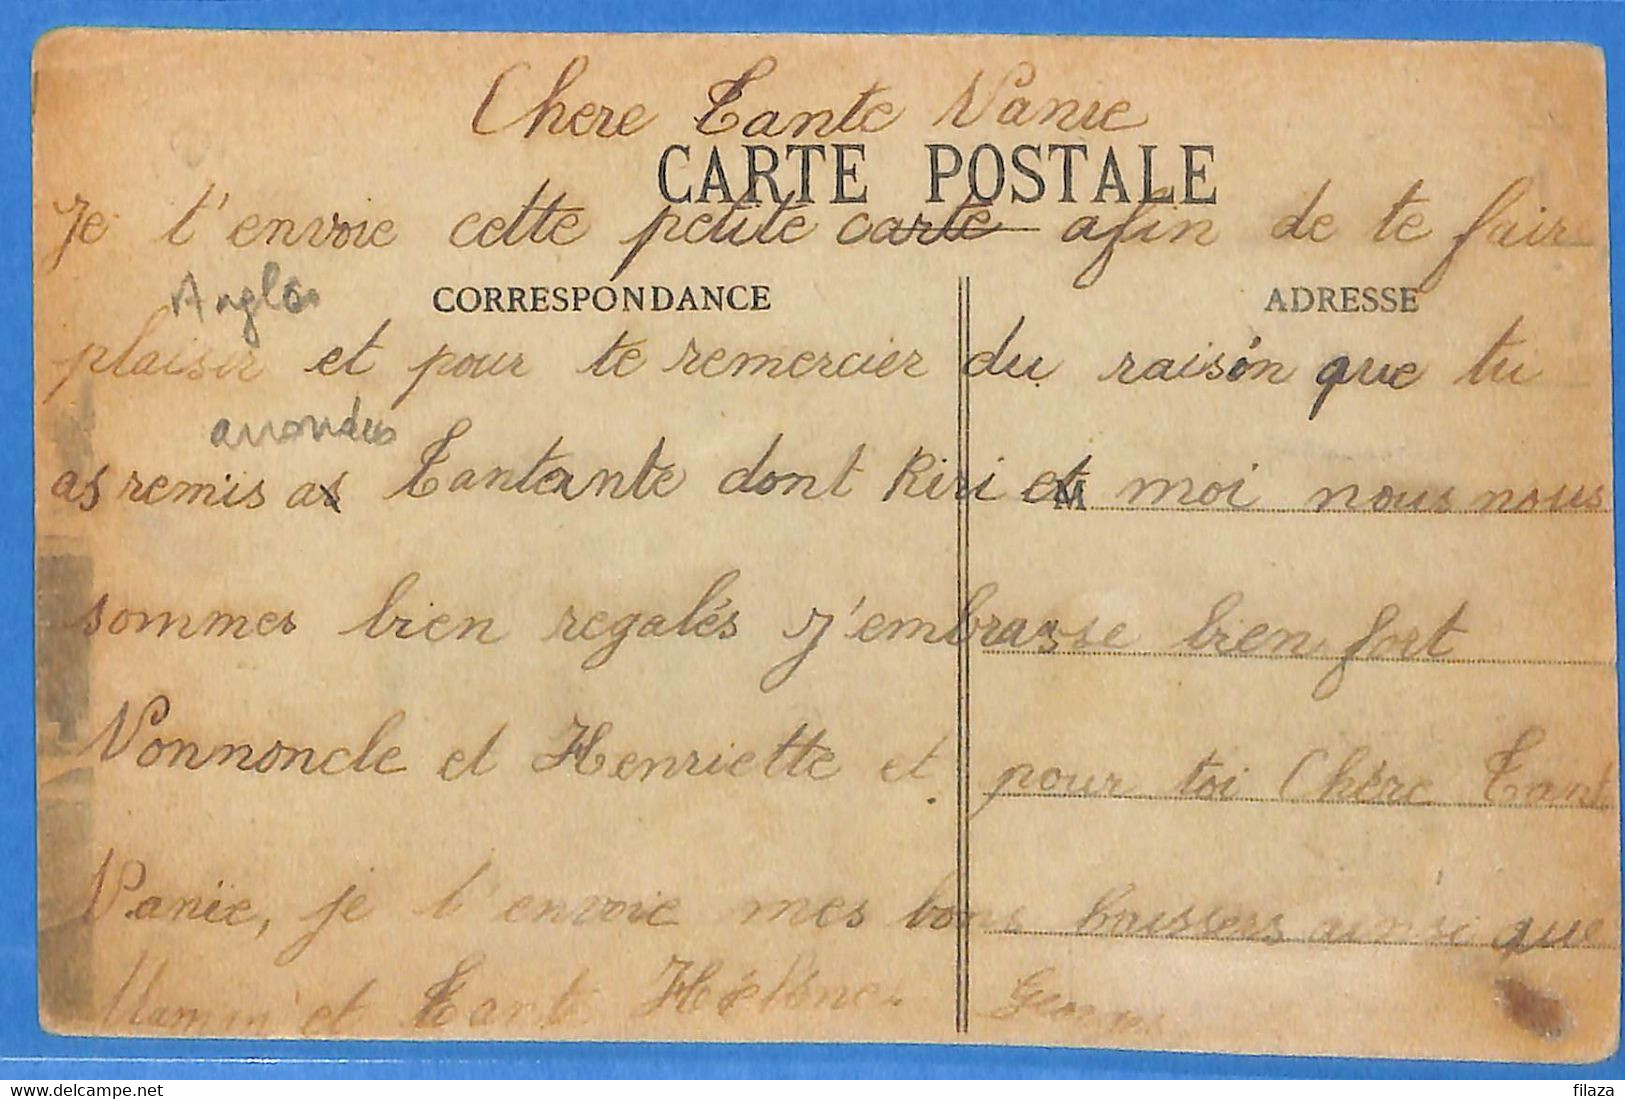 Chere Tante Vanie
CARTE POSTALE
Je t'envoie cette petite carte afin de te fair
CORRESPONDANCE
ADRESSE
plaisir et pour te remercier du raisón que tu
as remis as Tantante dont Riri et moi nous nous
M
sommes bien regalés J'embrasse bien fort
Vonnoncle et Henriette et pour toi Chère Tant
Vanïe, je t'envoie mes bons baissers ainsi que
Maman et Tant
filaza